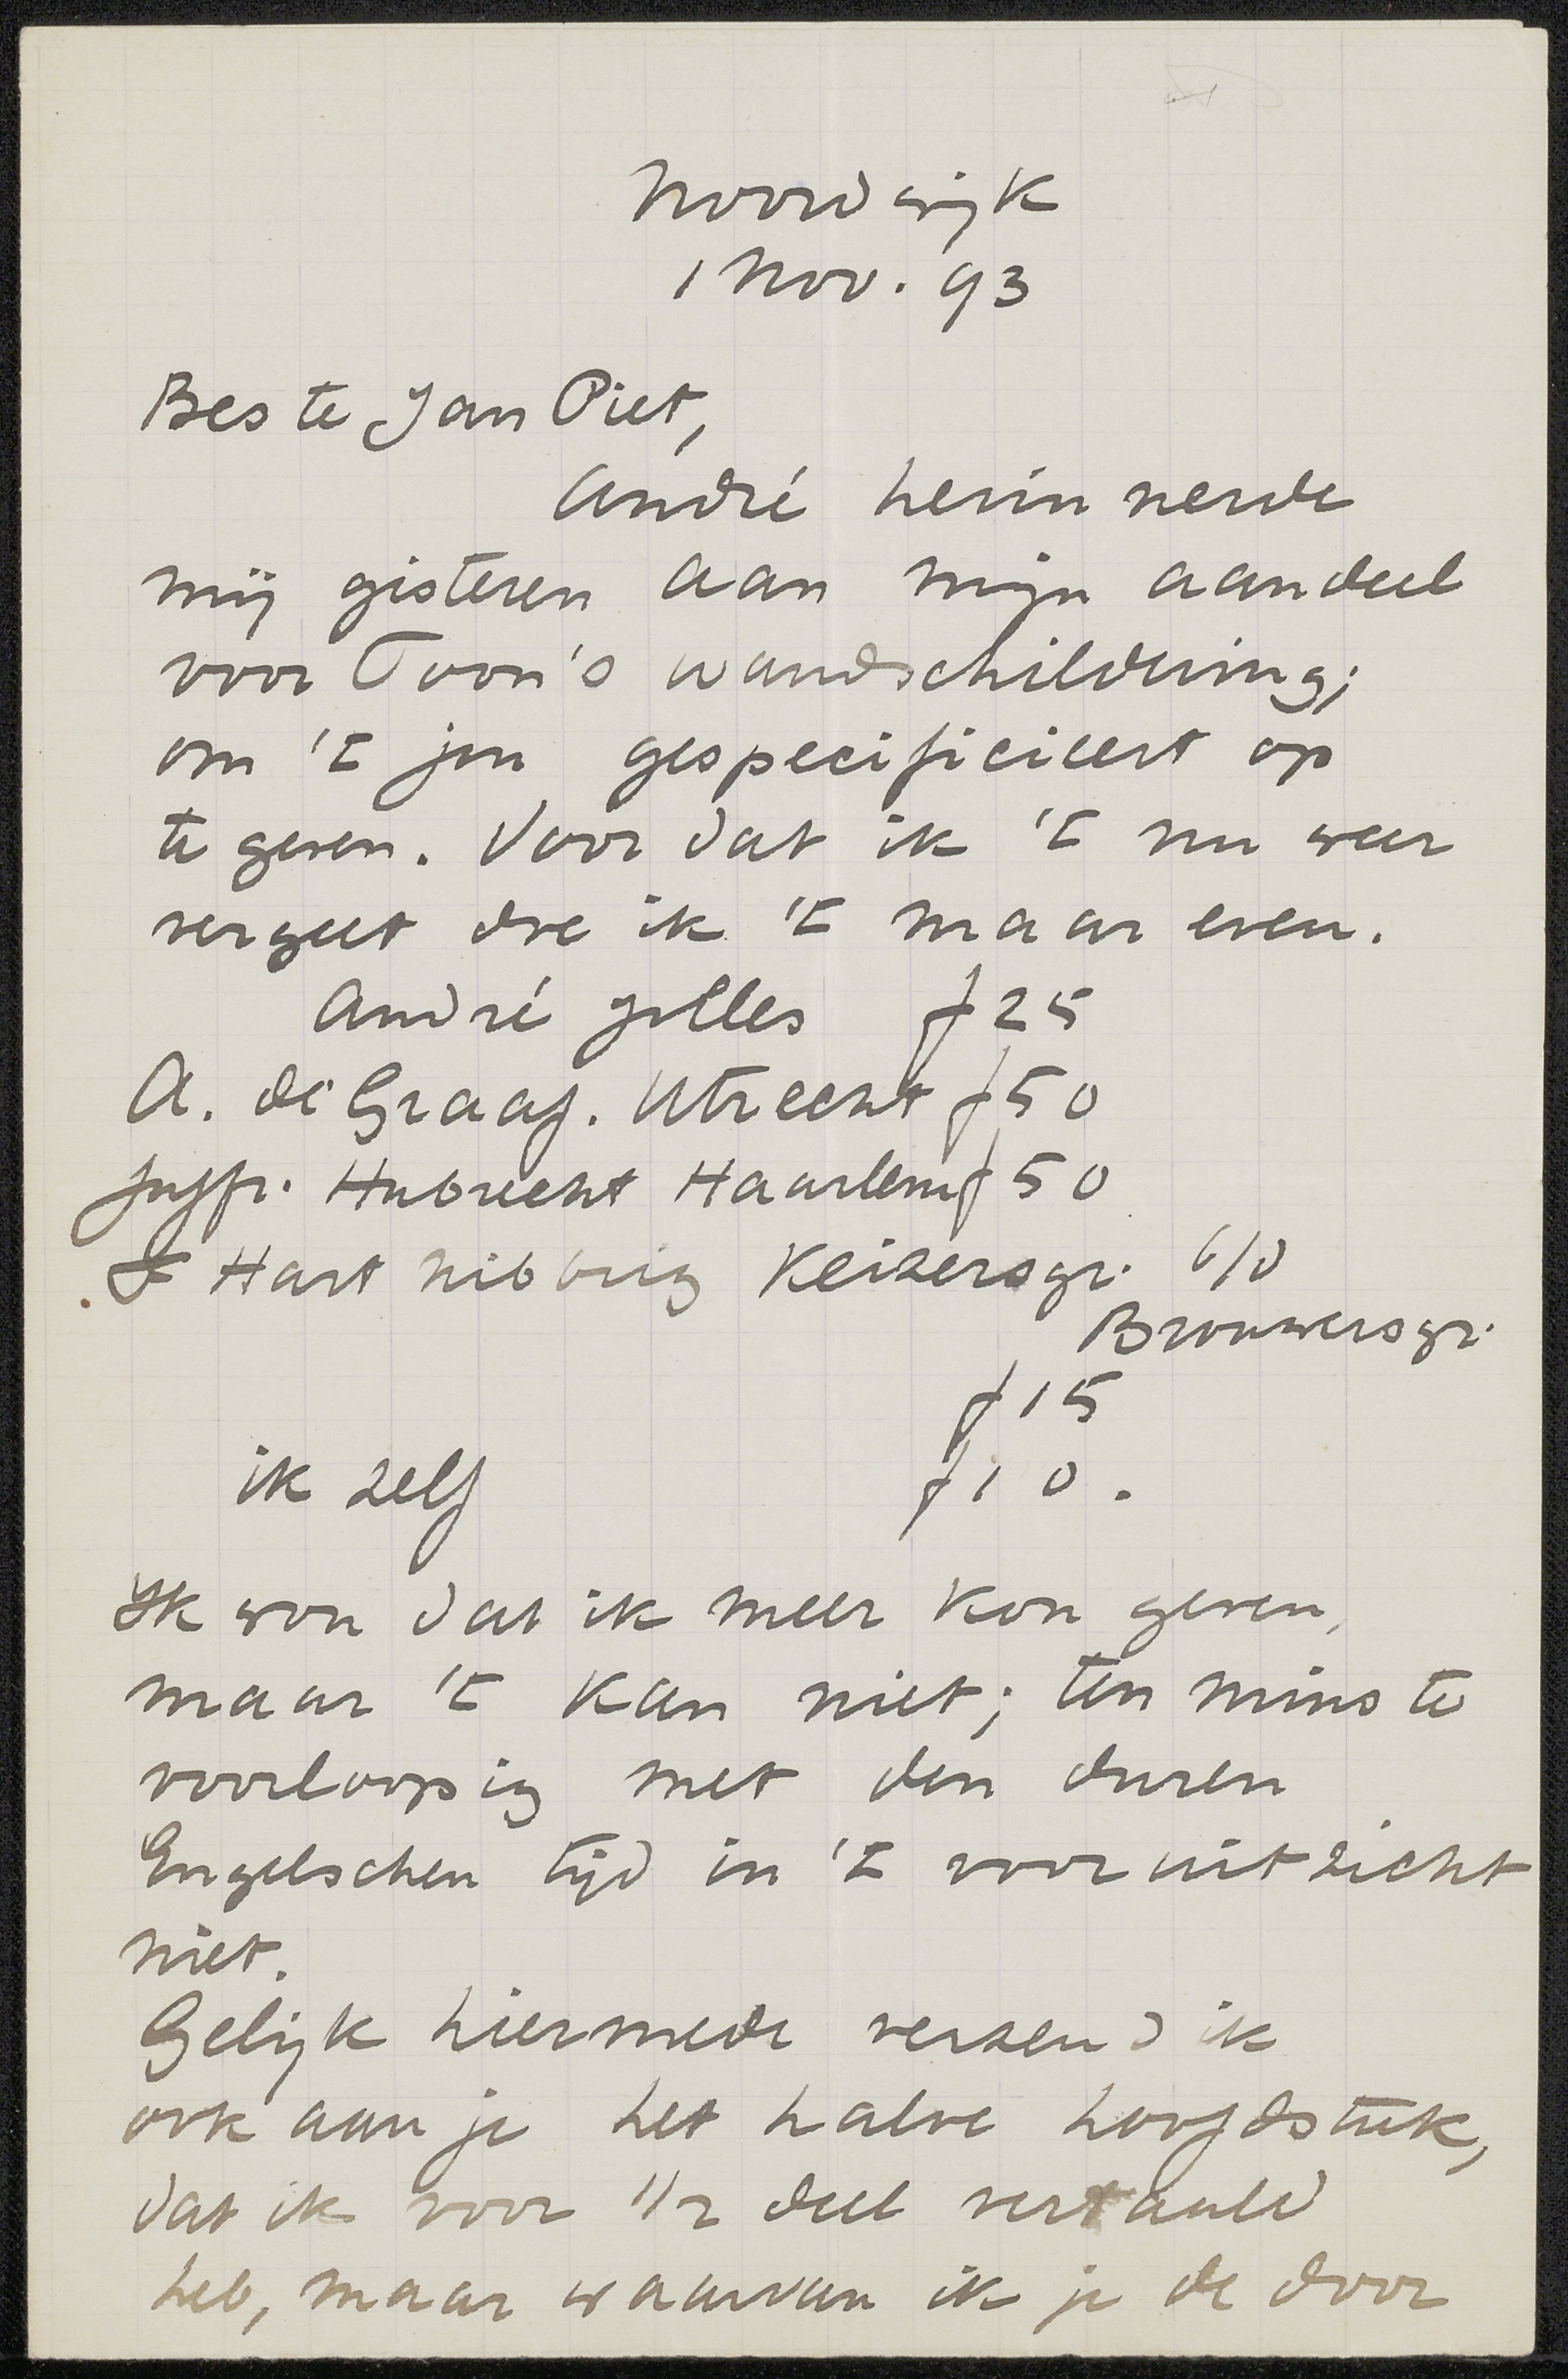 Noordwijk
1 Nov. 93
Beste Jan Piet,
André herinnerde
mij gisteren aan mijn aandeel
voor Toon's wandschildering;
om 't jou gespecificeert op
te geven. Voor dat ik 't nu weer
vergeet doe ik 't maar even.
André Jolles f 25
A. de Graaf. Utrecht f 50
Juffr. Hubrecht Haarlem f 50
Hart Nibbrig Keizersgr. b/d
Brouwersgr.
f 15
ik zelf f 10.
Ik wou dat ik meer kon geven,
maar 't kan niet; ten minste
voorloopig met den duren
Engelschen tijd in 't vooruitzicht
niet.
Gelijk hiermede verzend ik
ook aan je het halve hoofdstuk,
dat ik voor 1/2 deel vertaald
heb, maar waarvan ik je de door